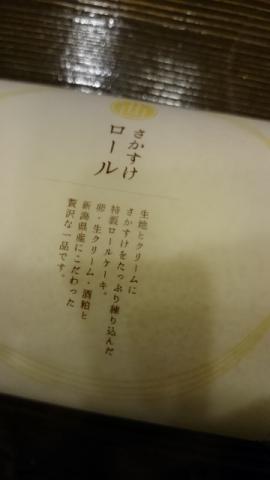 さかすけ
ロール
生地とクリームに
さかすけをたっぷり練り込んだ
特製ロールケーキ。
卵・生クリーム・酒粕と
新潟県産にこだわった
贅沢な一品です。